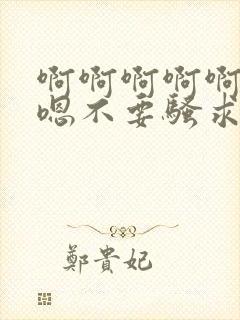 啊啊啊啊啊
嗯不要骚求
鄭貴妃